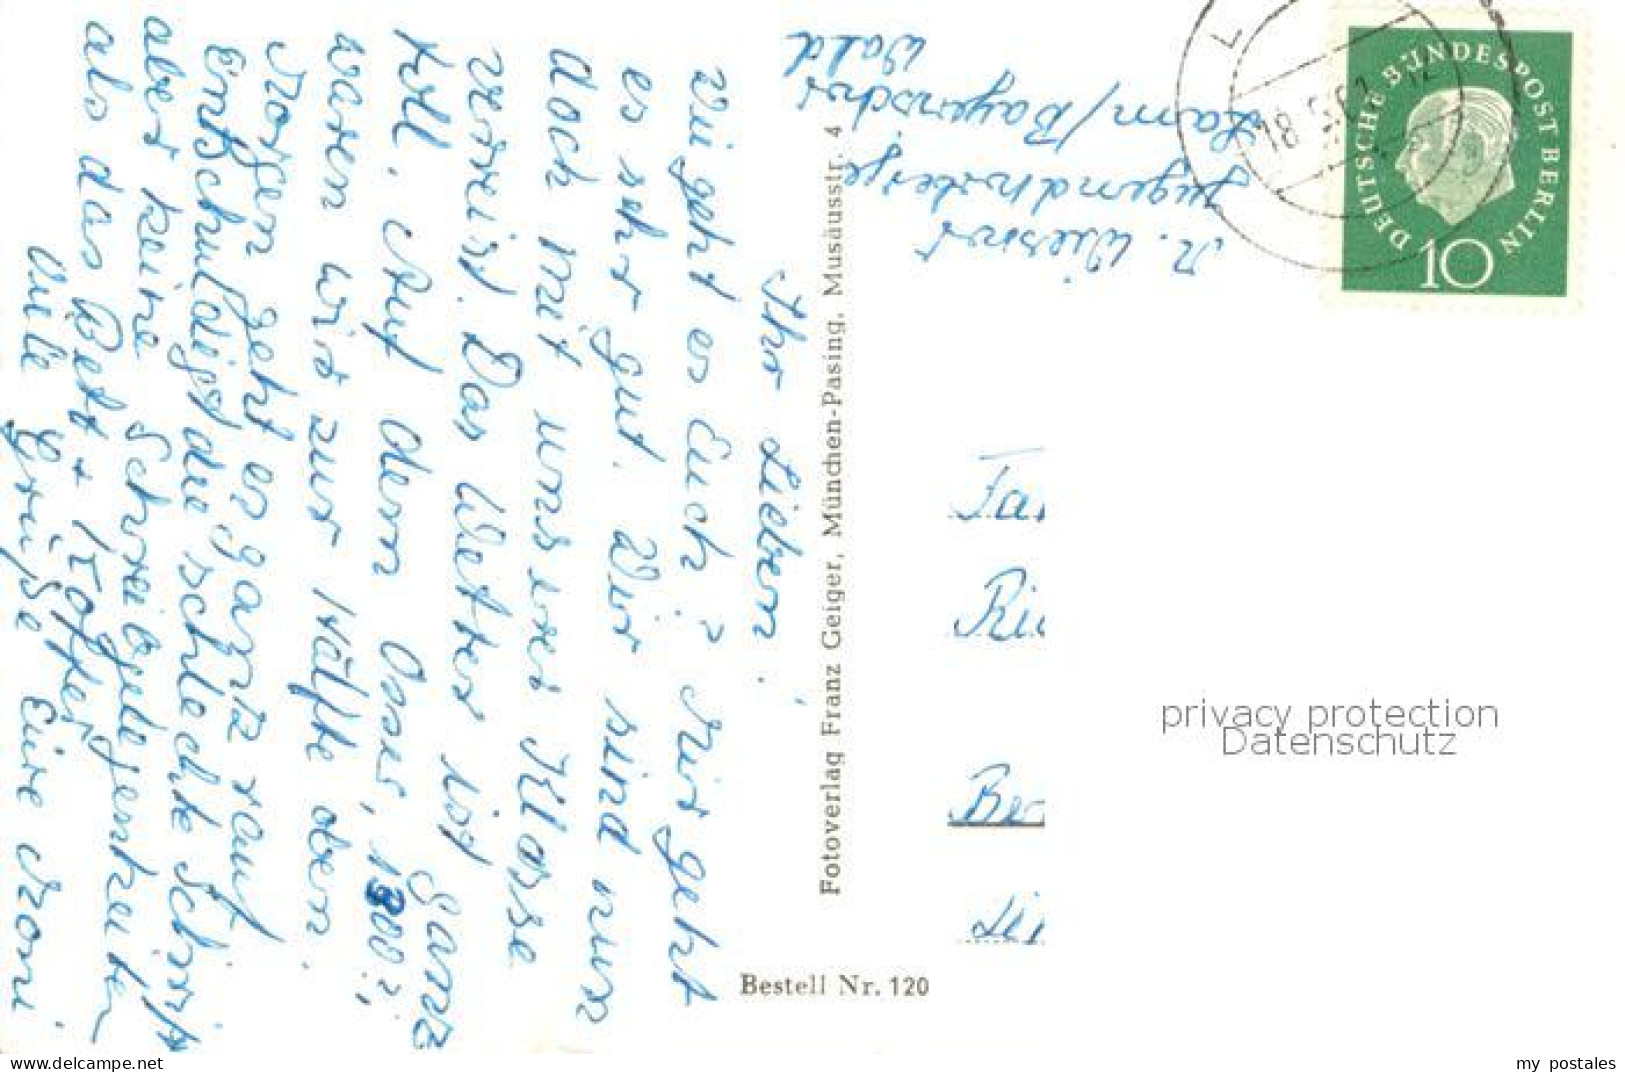 Ihr Lieben!
Wie geht es Euch? Mir geht
es sehr gut. Wir sind nur
doch mit unsrer Klasse
verreist. Das Wetter ist ganz
toll. Auf dem Osser, 1300?,
waren wir zur Hälfte oben.
Morgen geht es ganz rauf
Entschuldigt die schlechte Schrift
aber keine Schreibgelegenheiten
als das Bett + Koffer
Viele Grüße Eure Moni.
Fotoverlag Franz Geiger, München-Pasing, Musäusstr. 4
Bestell Nr. 120
Jugendherberge
Lam/Bayerischer
Wald
DEUTSCHE BUNDESPOST BERLIN
10
18
Fa
Ri
Be
privacy protection
Datenschutz
www.delcampe.net
my_postales